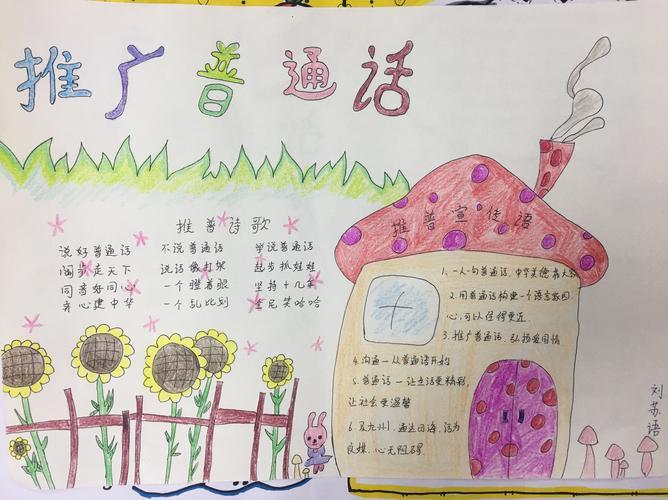 推广普通话
推普诗歌
说好普通话 不说普通话 学说普通话
阔步走天下 说话像打架 起步抓娃娃
同音好同心 一个瞪着眼 坚持十几年
齐心建中华 一个乱比划 笑哈哈
推普宣传语
1、一人一句普通话,中华美德
2、用普通话构建一个语言家园,
心,可以住得更近
3、推广普通话,弘扬爱国情
4.沟通—从普通话开始
5.普通话—让生活更精彩,
让社会更温馨
6.及九州,通达四海,话为
良媒,心无阻碍.
刘苏语